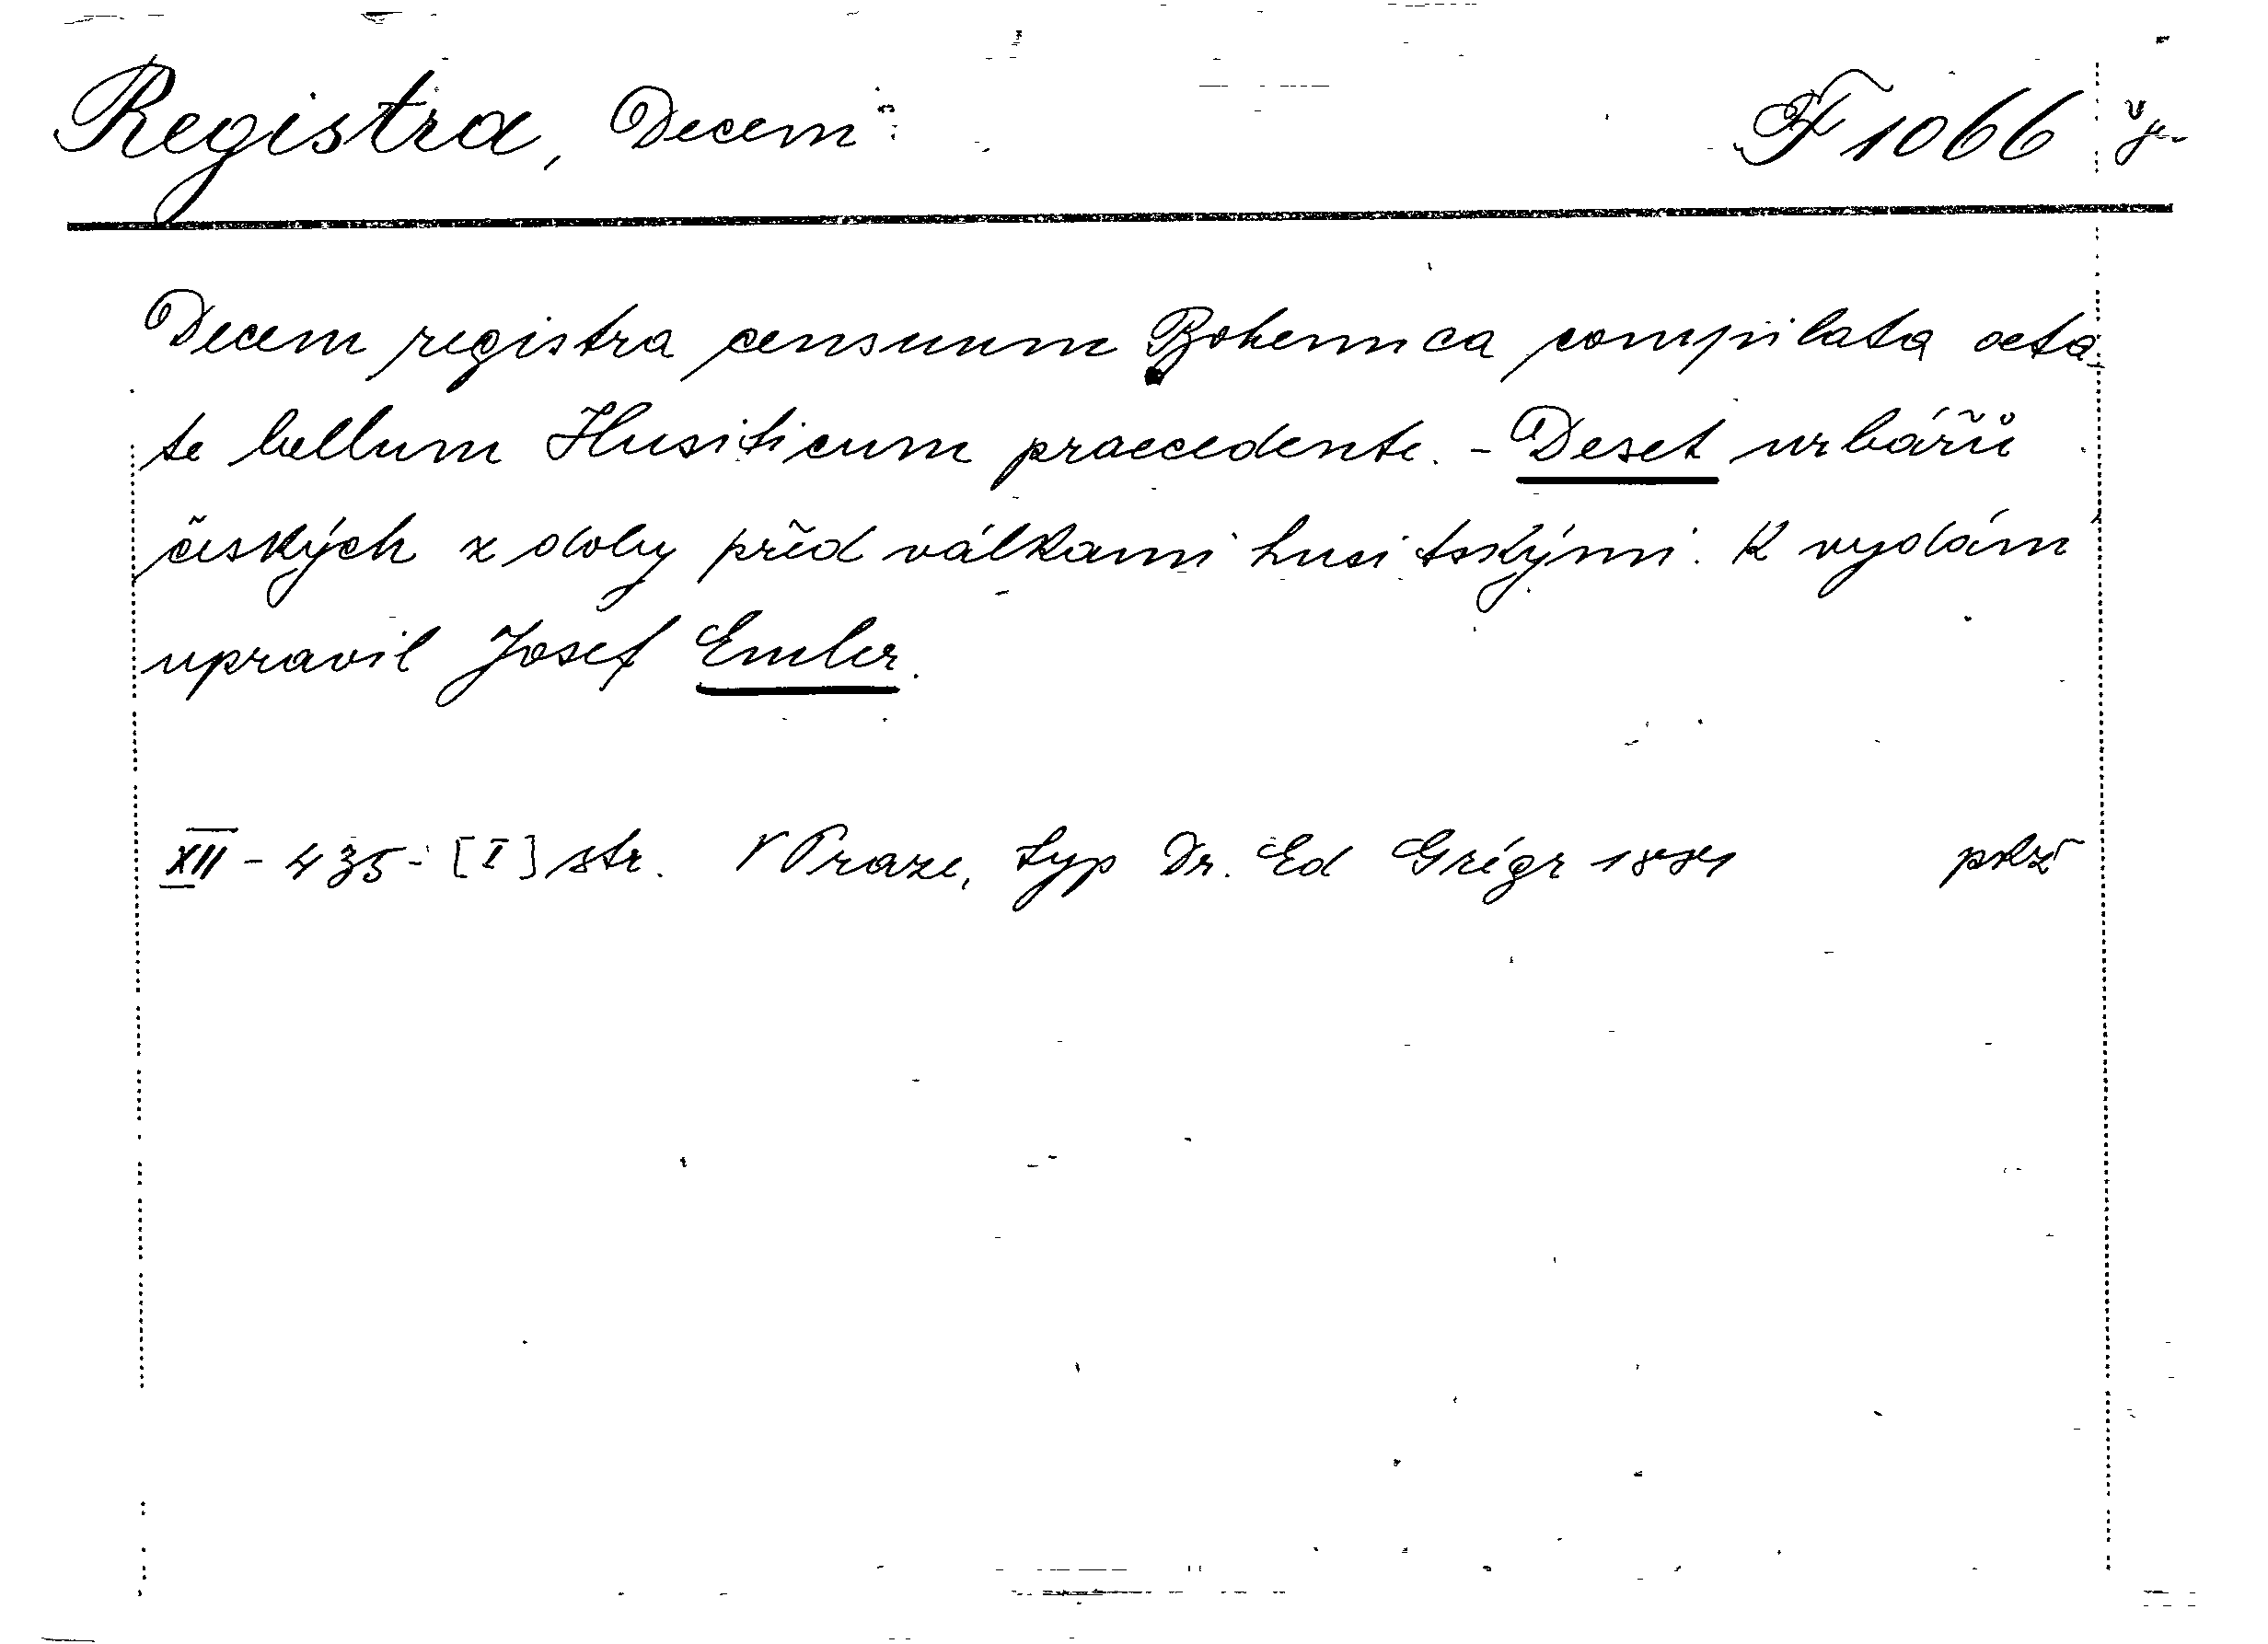 Registra, Decem F 1066
Decem registra censuum Bohemica compilata aeta
te bellum Husiticum praecedente. - Deset urbářů
českých z doby před válkami husitskými. K vydání
upravil Josef Emler.
XII - 435 - [I] str. V Praze, typ Dr. Ed Grégr 1881 pkž